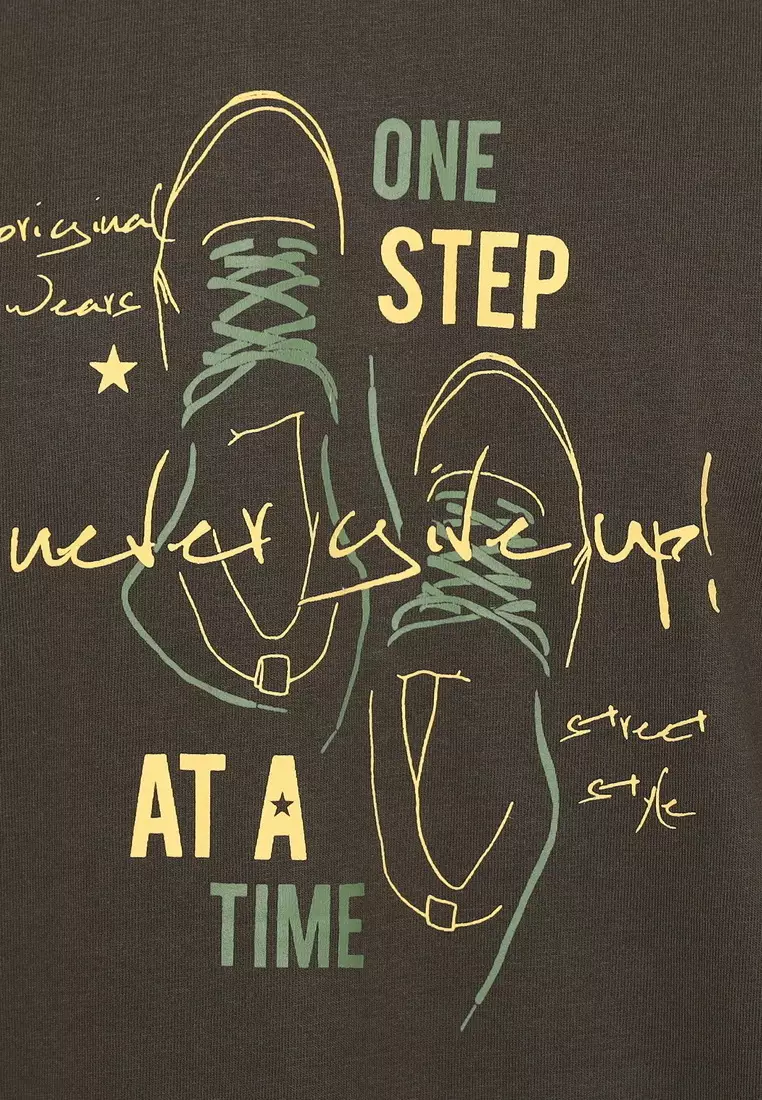 ONE
STEP
original
wears
never give up!
street
style
AT A
TIME